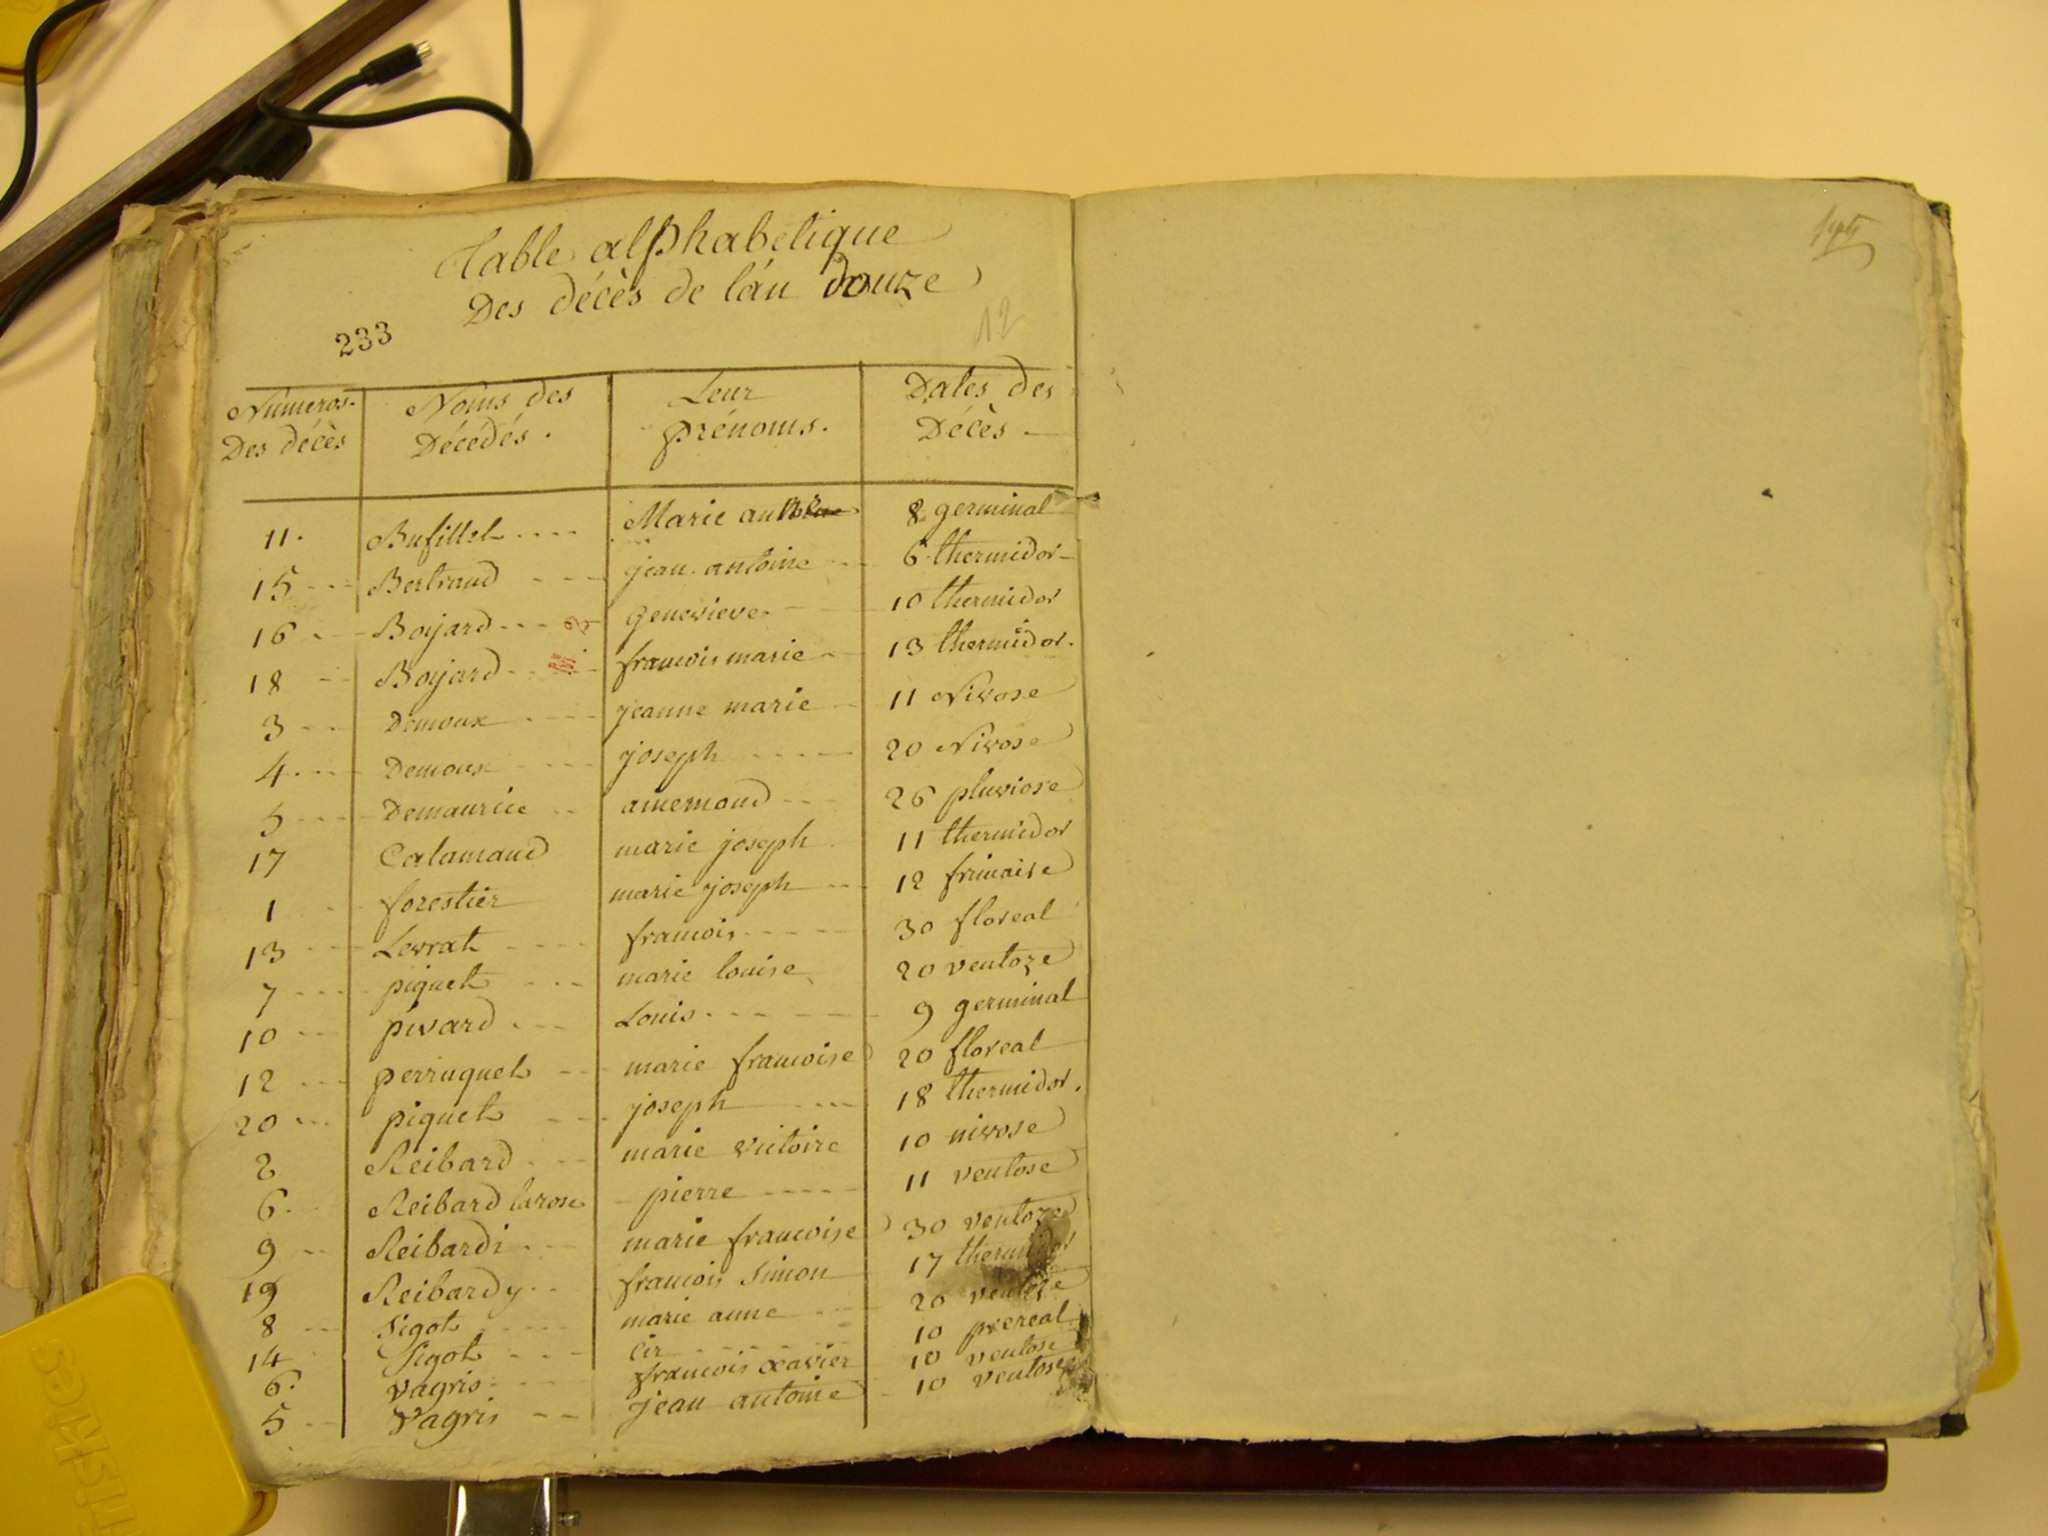 Table alphabetique
Des décès de l'an douze
233
12
Numeros Des décès | Noms des Décédés. | Leur prénoms. | Dates des Décès
11. Bufillet Marie 8 germinal
15 Bertrand jean antoine 6 thermidor
16 Boijard genevieve 10 thermidor
18 Boijard francois marie 13 thermidor.
3 Demoux jeanne marie 11 Nivose
4 Demoux joseph 20 Nivose
5 Demaurice amemond 26 pluviose
17 Catamand marie joseph 11 thermidor
1 forestier marie joseph 12 frimaire
13 Levrat francois 30 floreal
7 piquet marie louise 20 ventoze
10 pivard Louis 9 germinal
12 perruquet marie francoise 20 floreal
20 piquet joseph 18 thermidor.
2 Reibard marie victoire 10 nivose
6. Reibard larose pierre 11 ventose
9 Reibardi marie francoise 30 ventoze
19 Reibardy francois Simon 17 thermidor
8 Sigot marie anne 20 ventoze
14 Sigot cir 10 prereal
6. vagris francois xavier 10 ventose
5 vagris jean antoine 10 ventose